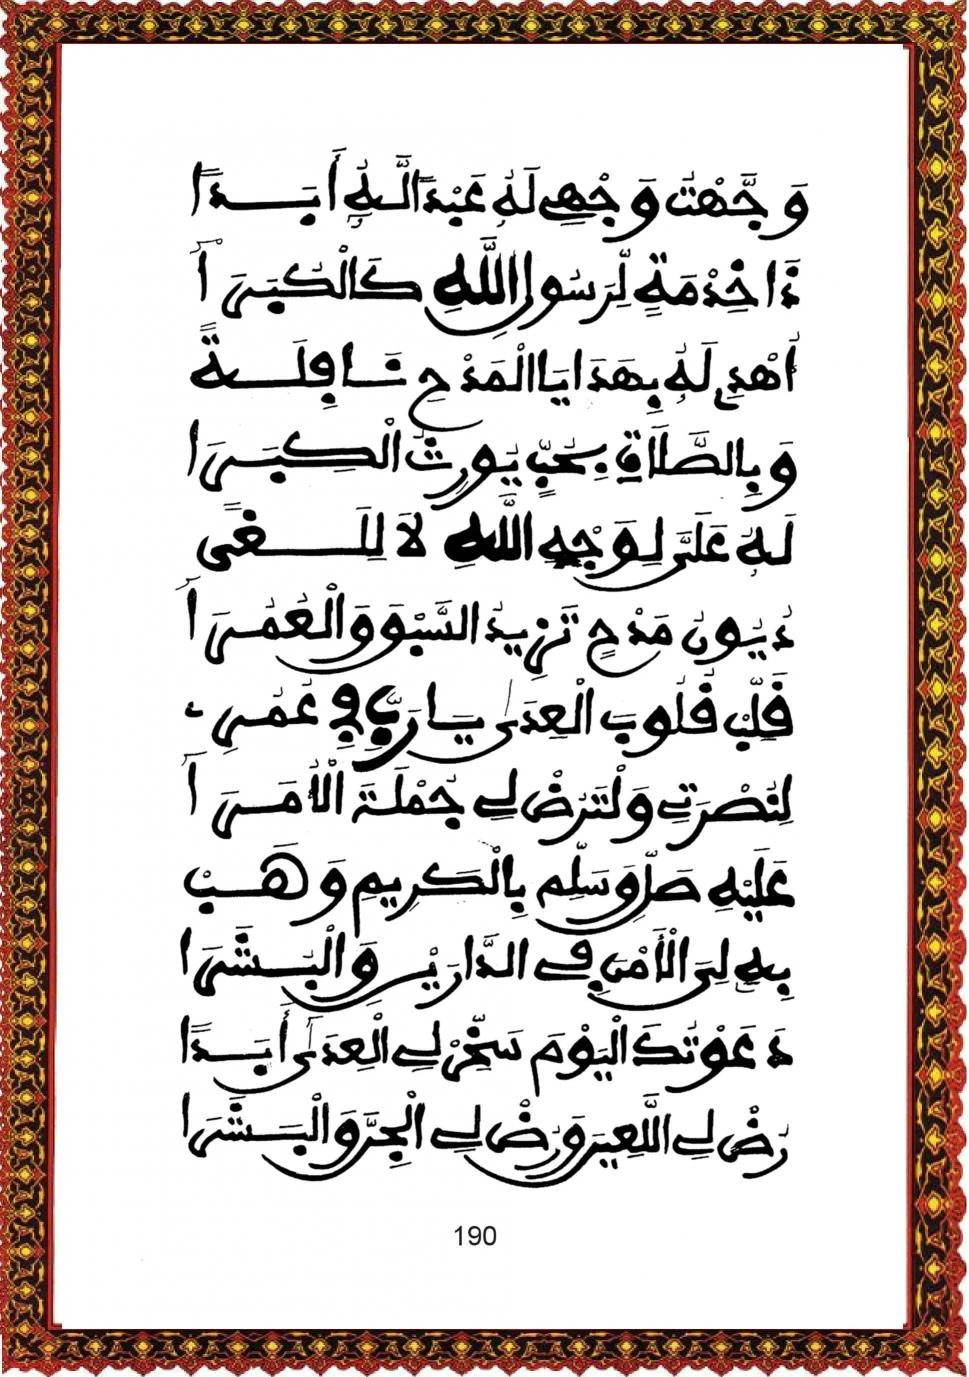 وَجَّهْتُ وَجْهِي لَهُ عَبْدًا لَّهُ أَبَدًا
ذَا خِدْمَةٍ لِّرَسُولِ اللَّهِ كَالْكُبَرَآ
أُهْدِي لَهُ بِهَدَايَا الْمَدْحِ نَافِلَةً
وَبِالصَّلَاةِ بِحُبٍّ يُورِثُ الْكِبَرَا
لَهُ عَلَيَّ لِوَجْهِ اللَّهِ لَا لِلَغًى
دُيُونُ مَدْحٍ تَزِيدُ السَّبْوَ وَالْعُمُرَآ
قَلِّبْ قُلُوبَ الْعِدَى يَا رَبِّ فِي عُمُرِي
لِنُصْرَتِي وَلْتَرُضْ لِي جُمْلَةَ الْأُمَرَآ
عَلَيْهِ صَلِّ وَسَلِّم بِالْكَرِيمِ وَهَبْ
بِهِ لِيَ الْأَمْنَ فِي الدَّارَيْنِ وَالْبُشَرَا
دَعَوْتُكَ الْيَوْمَ سَخِّرْ لِي الْعِدَى أَبَدًا
رُضْ لِي اللَّعِينَ وَرُضْ لِي الْجِنَّ وَالْبَشَرَا
190